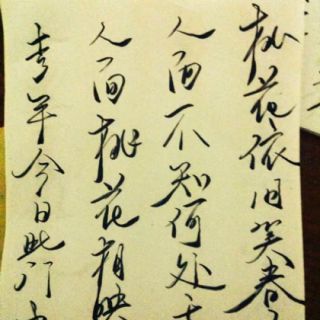 去年今日此门中
人面桃花相映
人面不知何处去
桃花依旧笑春